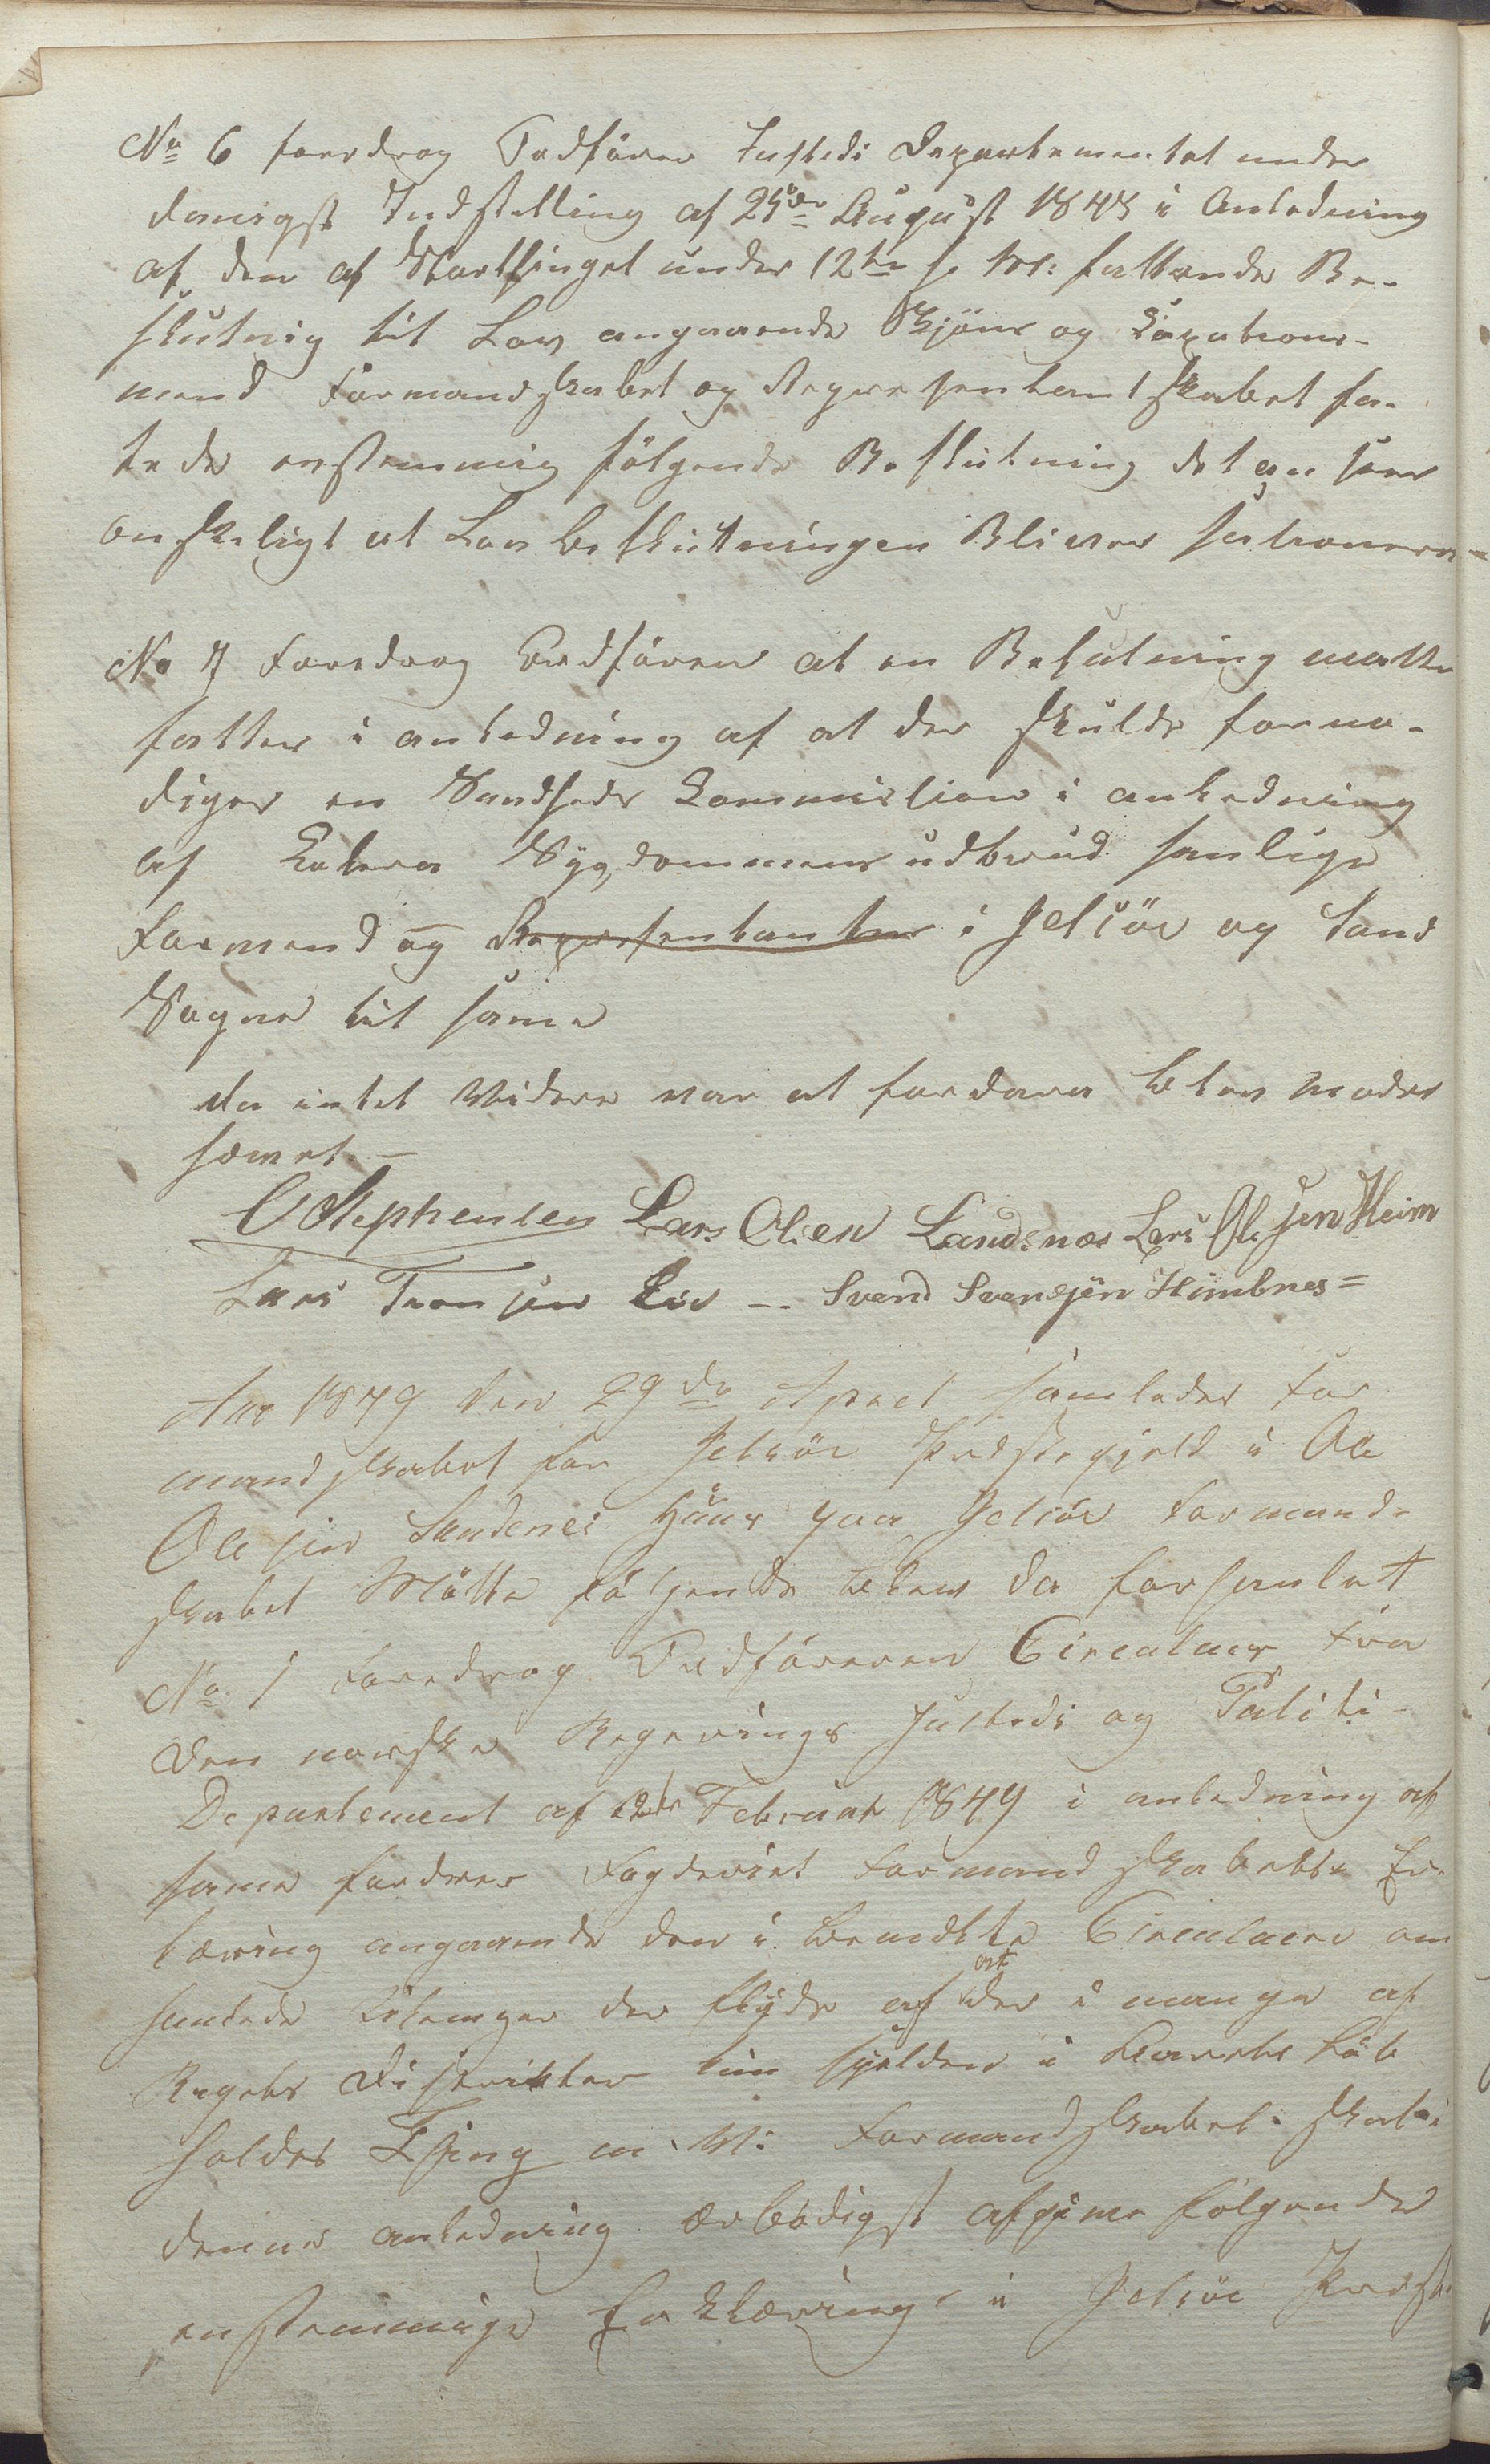 No 6 foredrog Ordförer Justeds Departementet under
danigst Indstelling af 25de August 1848 i Anledning
af den af Storthinget under 12te s. M: fattende Be-
slutnig til Lov angaaende Skjöns og Taxations-
mend Formandskabet og Representantskabet fa-
tede enstemmig fölgende Beslutning det an seer
önskeligt at Lov beslutningen Bliver sationere-
No 7 Foredrog Ordförer at en Beslutning matte
fattes i anledning af at der skulde forno-
diges en Sundheds Commission i anledning
af Colera Sygdommens udbrud samlige
Formend og Representanter i Jelsöe og Sand
Sogne til same
da intet Videre var at fordara blev modet
hævet. –
O Stephensen Lars Olsen Landsnæs Lars Olesen Heim
Lars Tronsen Lie -- Svend Svensen Himbnes =
Aar 1849 den 29de Apriel samledes For
mandskabet for Jelsöe Prestegjeld i Ole
Olesen Sandenes Huus paa Jelsöe Formand-
skabet Mötte fölgende blev da forhanlet
No 1 Foredrog Ordföreren Circulær fra
den norske Regerings Justeds og Politi-
Departement af 2de Februar 1849 i anledning af
same fordrer Fogderiet Formandskabets Er-
klæring angaaende den i bemelte Circulære om
hanlede Ulemper der flyde af at der i mange af
Rigets Districkter kun sjelden i Aarets Löb
holdes Thing m. M: Formandskabet skal i
denne anledning ærbödigst afgive fölgende
enstemmige Erklæring i Jelsöe Preste